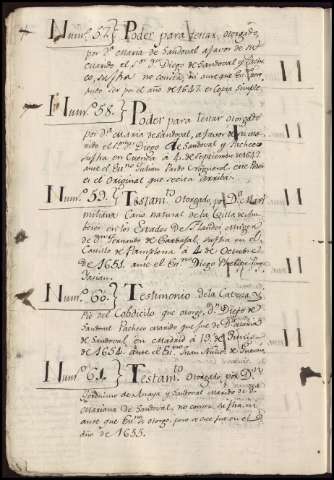 Num.º 57. Poder para testar, otorgado
por D.ª Maria de Sandoval a favor de su
marido el S.r D.n Diego de Sandoval y Pache
co, su fha no consta, ni ante que Es.no
por el año de 1647. es Copia simple
Num.º 58. Poder para testar otorgado
por D.ª Maria de Sandoval, a favor de su ma
rido el S.r D.n Diego de Sandoval y Pacheco
su fha en Cuenca a 4. de Septiembre de 1647.
ante el Es.no Julian Pardo
el Original que recita arriba.
Num.º 59. Testam.to Otorgado por D.ª Maxi
miliana Cano natural de la Villa de
en los Estados de Flandes, Muger
de D.n Fernando de Carbajal su fha en el
Castillo de Pamplona a 4 de Octubre
de 1651. ante el Es.no Diego
Num.º 60. Testimonio de la Cabeza y
Pie del Cobdicilo que otorgó D.n Diego de
Sandoval Pacheco marido que fue de D.ª Maria
de Sandoval, en Madrid a 19. de
de 1654. ante el Es.no Juan Muñoz de
Num.º 61. Testam.to Otorgado por D.n
Geronimo de Anaya y Sandoval marido de D.ª
Mariana de Sandoval, no consta su fha ni
ante que Es.no se otorgo, pero se ve fue en el
año de 1655.